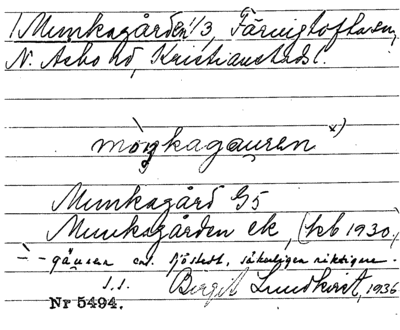 1 Munkagården 1/3, Färingtofta sn,
N. Åsbo hd, Kristianstads l.
mòŋkagau̯ren x)
Munkagård G5
Munkagården ek, (kb 1930.)
- gäu̯ren enl. Sjöstedt, säkerligen riktigare.
s.s. Birgit Lundkvist, 1936
Nr 5494.